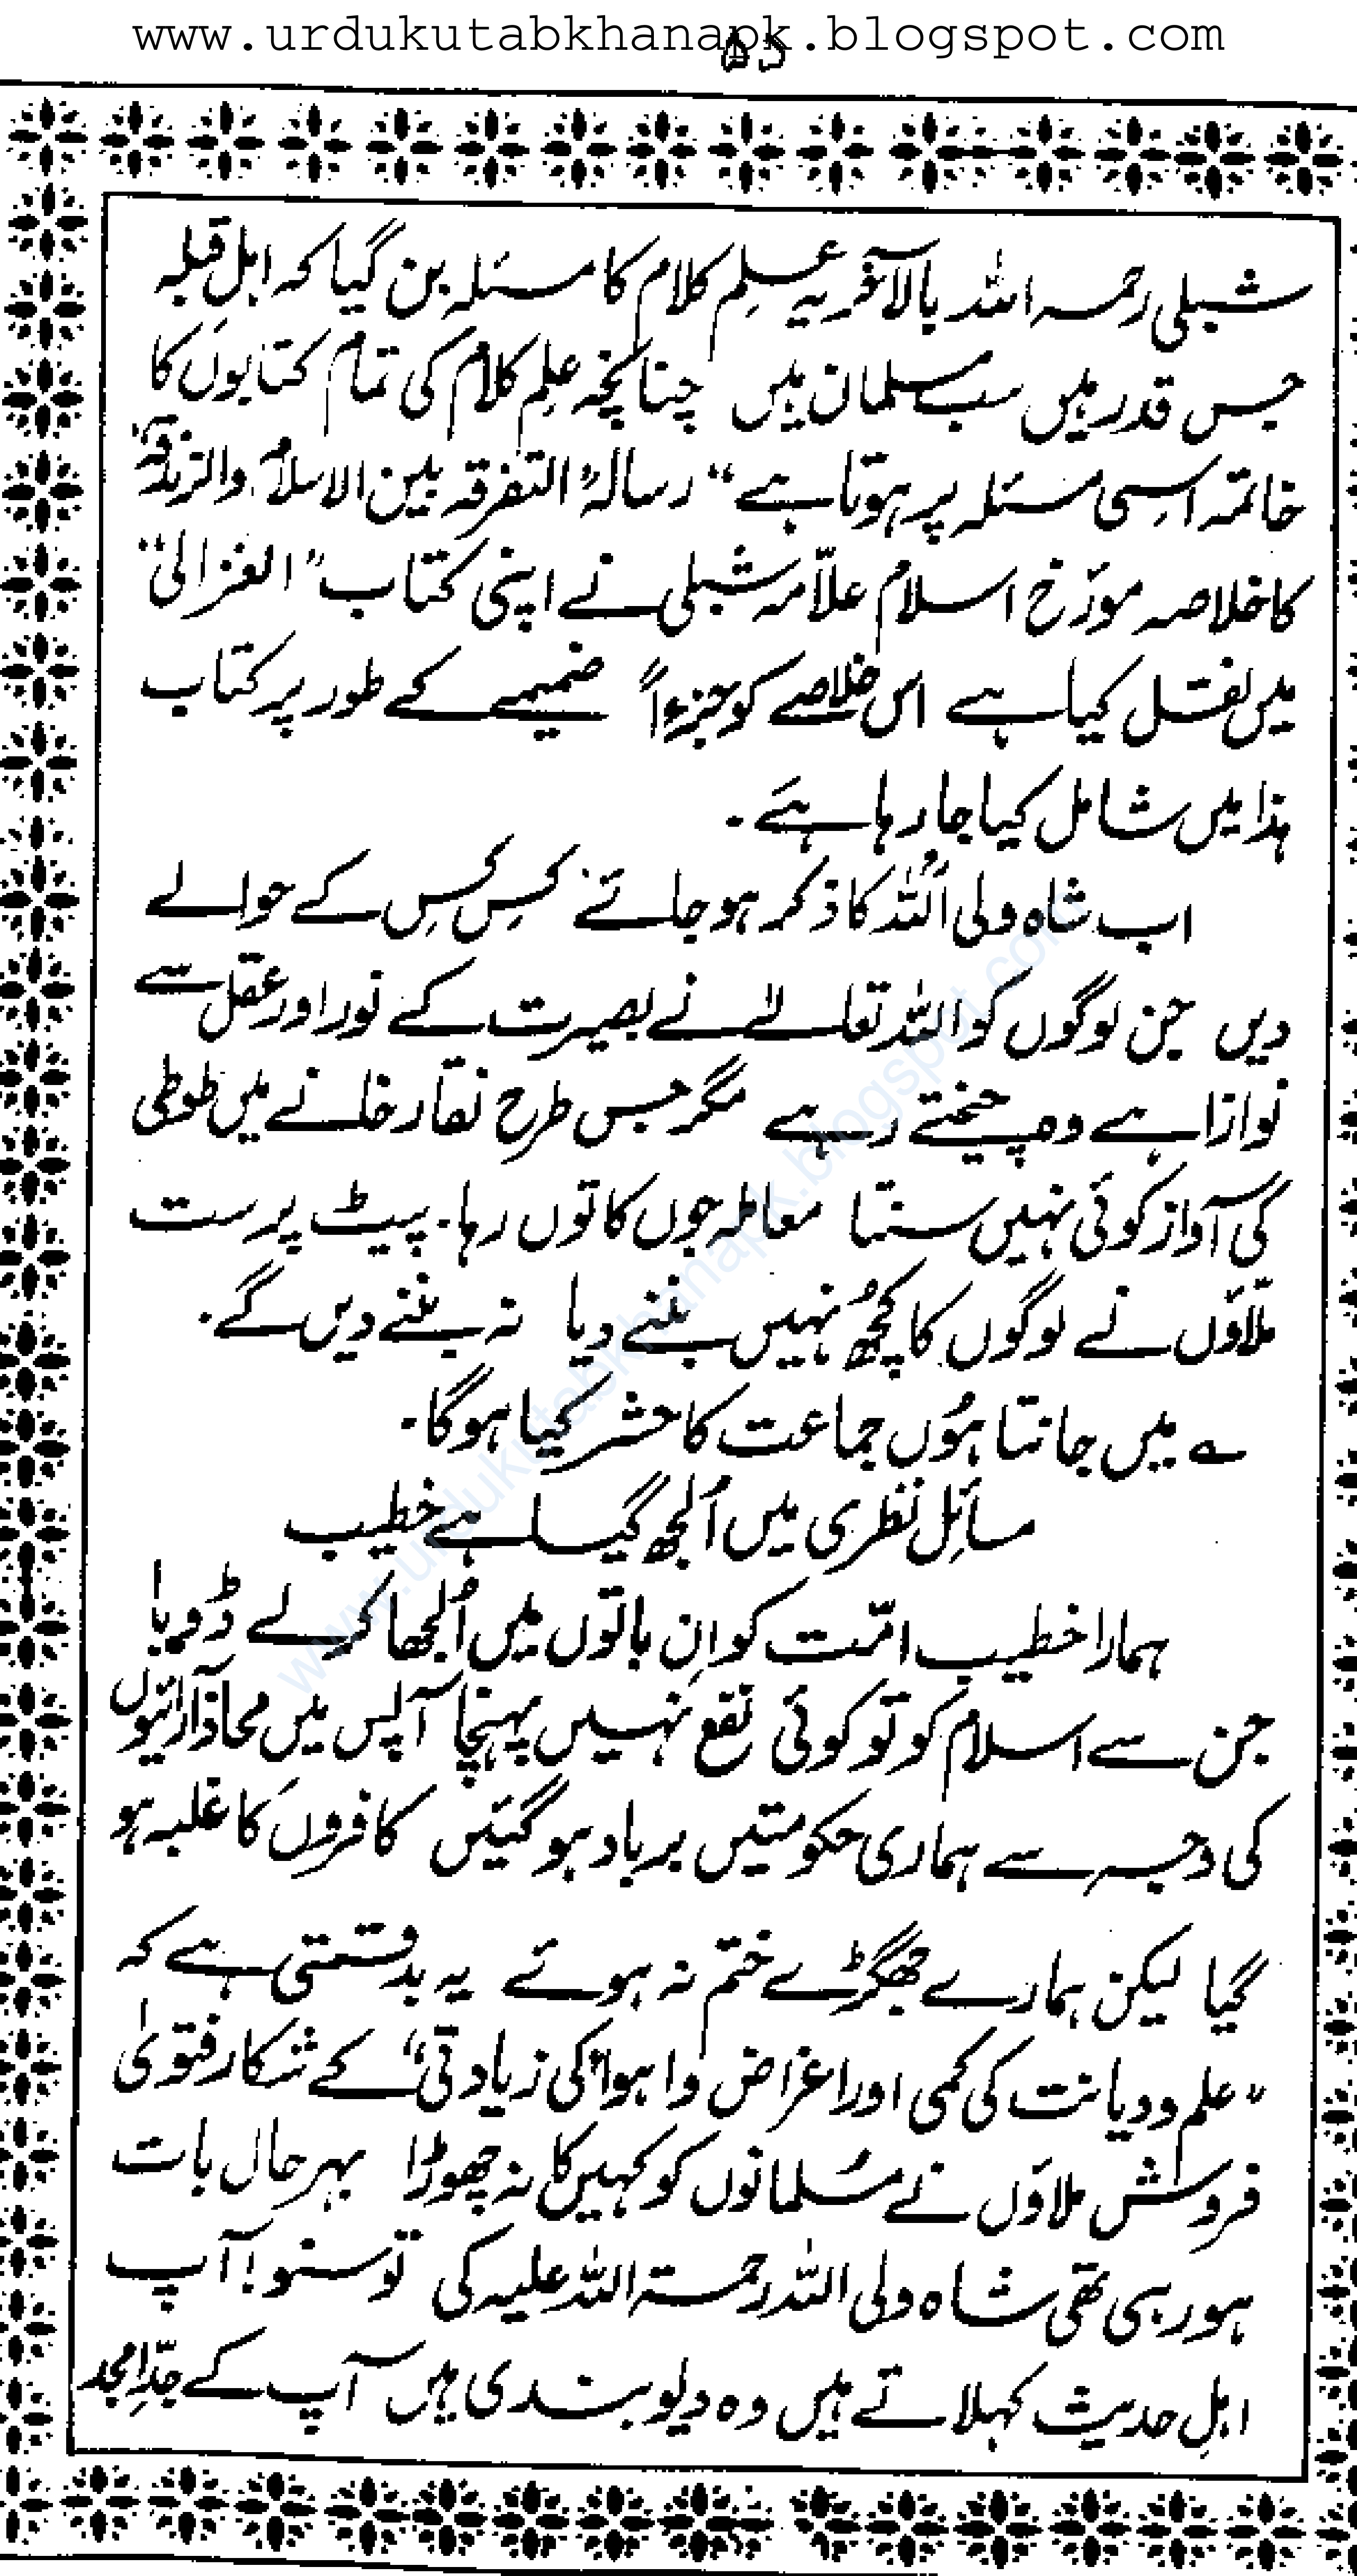 www.urdukutabkhanapk.blogspot.com
شبلی رحمہ اللہ بالآخر یہ علم کلام کا مسئلہ بن گیا کہ اہلِ قبلہ
جس قدر ہیں سب مسلمان ہیں چنانچہ علمِ کلام کی تمام کتابوں کا
خاتمہ اسی مسئلہ پر ہوتا ہے “ رسالہ” التفرقہ بین الاسلام والزندقہ“
کا خلاصہ مورّخ اسلام علاّمہ شبلی نے اپنی کتاب ” الغزالی “
میں نقل کیا ہے اس خلاصے کو جزءاً ضمیمے کے طور پر کتاب
ہذا میں شامل کیا جا رہا ہے ۔
اب شاہ ولی اللہ کا ذکر ہو جائے کس کس کے حوالے
دیں جن لوگوں کو اللہ تعالےٰ نے بصیرت کے نور اور عقل سے
نوازا ہے وہ چیختے رہے مگر جس طرح نقار خانے میں طوطی
کی آواز کوئی نہیں سنتا معاملہ جوں کا توں رہا ۔ پیٹ پرست
ملاّؤں نے لوگوں کا کچھ نہیں بننے دیا نہ بننے دیں گے ۔
؎ میں جانتا ہُوں جماعت کا حشر کیا ہو گا ۔
مسائلِ نظری میں اُلجھ گیا ہے خطیب
ہمارا خطیب امّت کو اِن باتوں میں اُلجھا کر لے ڈوبا
جن سے اسلام کو تو کوئی نفع نہیں پہنچا آپس میں محاذ آرائیوں
کی وجہ سے ہماری حکومتیں برباد ہو گئیں کافروں کا غلبہ ہو
گیا لیکن ہمارے جھگڑے ختم نہ ہوئے یہ بدقسمتی ہے کہ
” علم و دیانت کی کمی اور اغراض و اہوا کی زیادتی “ کے شکار فتویٰ
فروش ملاؤں نے مُسلمانوں کو کہیں کا نہ چھوڑا بہر حال بات
ہو رہی تھی شاہ ولی اللہ رحمتہ اللہ علیہ کی تو سنو ! آپ
اہلِ حدیث کہلاتے ہیں وہ دیوبندی ہیں آپ کے جدِّ امجد
www.urdukutabkhanapk.blogspot.com